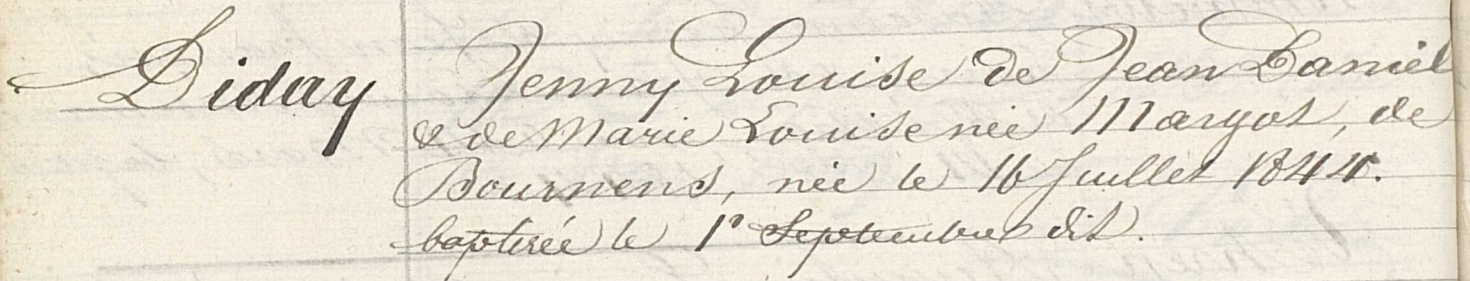 Diday Jenny Louise de Jean Daniel
& de Marie Louise née Margot, de
Bournens, née le 16 Juillet 1844.
baptisée le 1r Septembre dit.